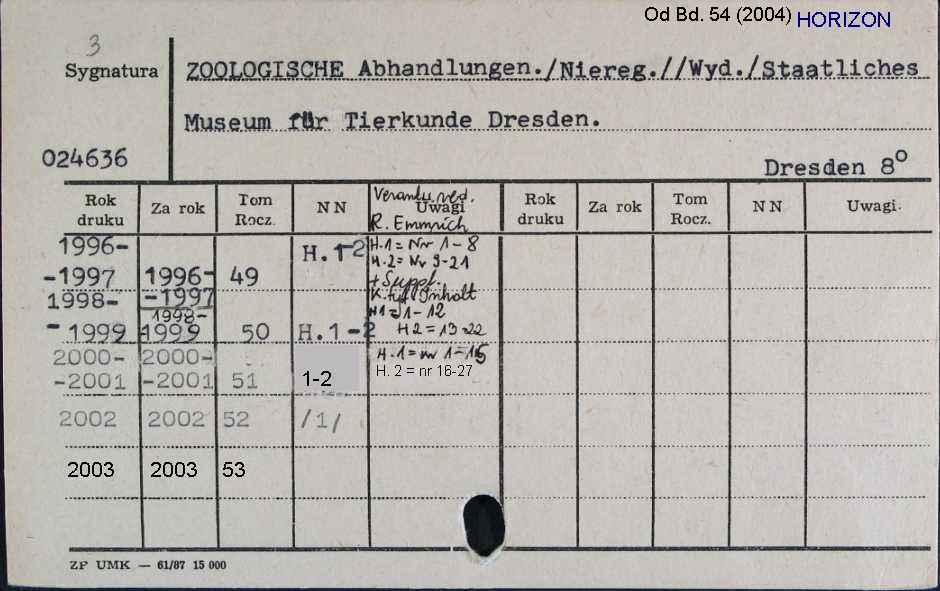 Od Bd. 54 (2004) HORIZON
3
Sygnatura
ZOOLOGISCHE Abhandlungen./Niereg.//Wyd./Staatliches
Museum für Tierkunde Dresden.
024636
Dresden 8°
Rok druku Za rok Tom Rocz. NN Uwagi Rok druku Za rok Tom Rocz. NN Uwagi
R. Emmrich
1996-
-1997 1996-
-1997 49 H.1-2 H.1 = Nr 1-8
H.2 = Nr 9-21
+ Suppl.
1998-
-1999 1998-
1999 50 H.1-2 Inhalt
H1 = 1-12
H2 = 13-22
2000-
-2001 2000-
-2001 51 1-2 H.1 = nr 1-15
H. 2 = nr 16-27
2002 2002 52 /1/
2003 2003 53
ZP UMK — 61/87 15 000